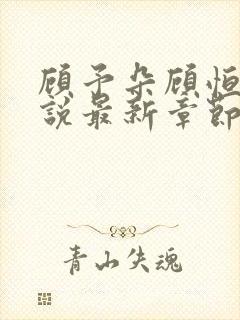 顾予朵顾恒
說最新章節
青山失魂